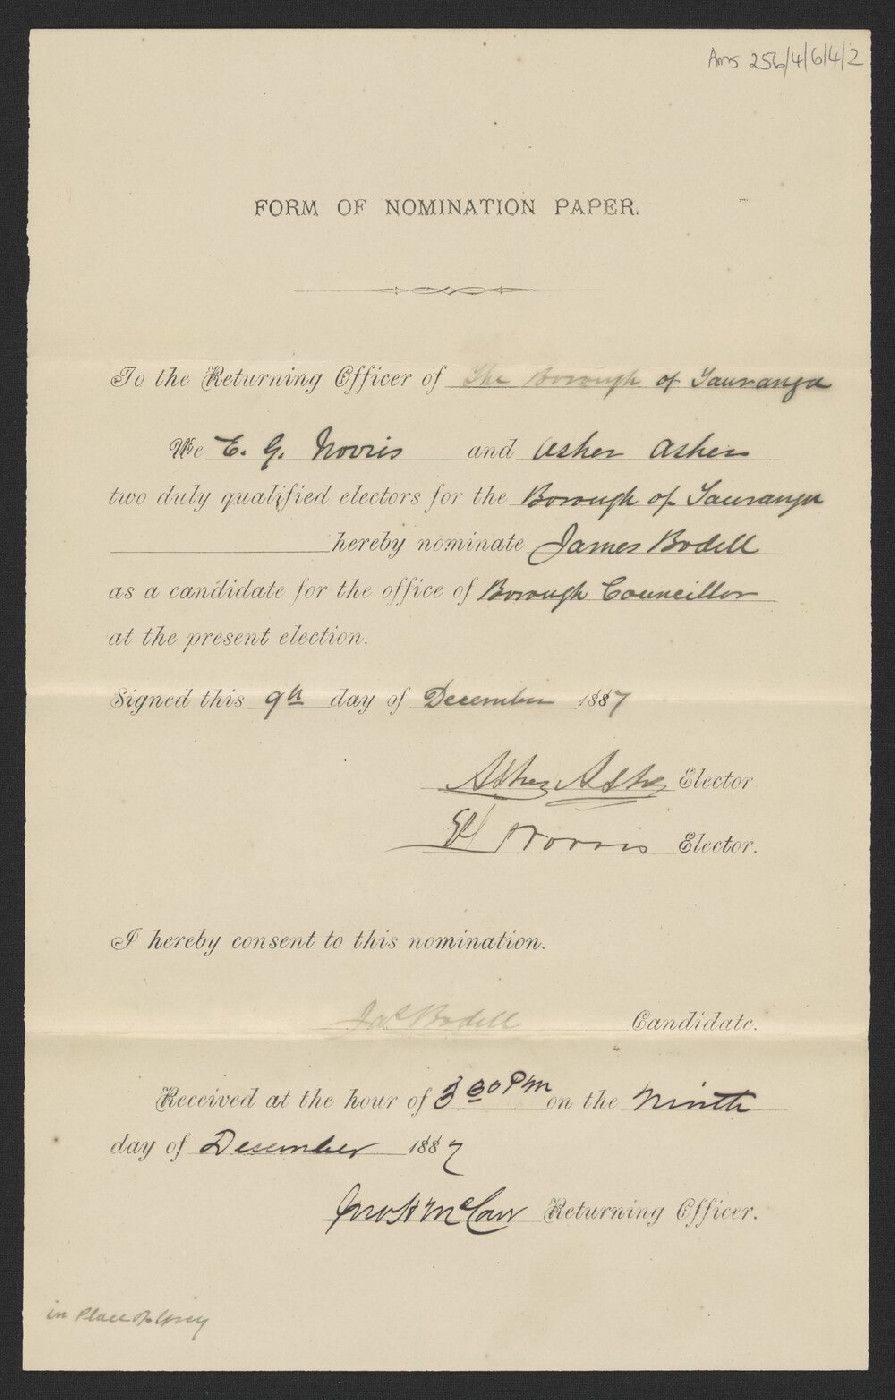 Ams 256/4/6/4/2
FORM OF NOMINATION PAPER.
To the Returning Officer of The Borough of Tauranga
We E. G. Norris and Asher Asher
two duly qualified electors for the Borough of Tauranga
hereby nominate James Bodell
as a candidate for the office of Borough Councillor
at the present election.
Signed this 9th day of December 1887
Asher Asher Elector
EG Norris Elector.
I hereby consent to this nomination.
Jas Bodell Candidate.
Received at the hour of 3 30 PM on the Ninth
day of Desember 1887
McCaw Returning Officer.
in Place of